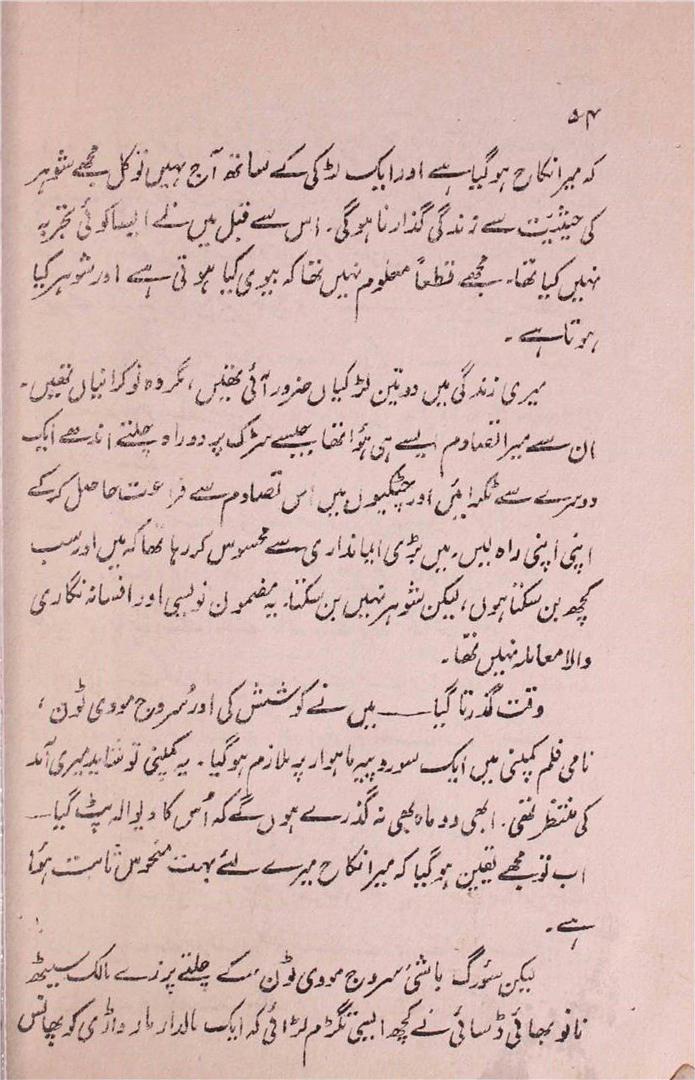 ۵۴
کہ میرا نکاح ہو گیا ہے اور ایک لڑکی کے ساتھ آج نہیں تو کل مجھے شوہر
کی حیثیت سے زندگی گذارنا ہوگی۔ اس سے قبل میں نے ایسا کوئی تجربہ
نہیں کیا تھا۔ مجھے قطعاً معلوم نہیں تھا کہ بیوی کیا ہوتی ہے اور شوہر کیا
ہوتا ہے۔
میری زندگی میں دو تین لڑکیاں ضرور آئی تھیں، مگر وہ نوکرانیاں تھیں۔
ان سے میرا تصادم ایسے ہی ہوا تھا جیسے سڑک پر دو راہ چلتے اندھے ایک
دوسرے سے ٹکرائیں اور چٹکیوں میں اس تصادم سے فراغت حاصل کرکے
اپنی اپنی راہ لیں۔ میں بڑی ایمانداری سے محسوس کر رہا تھا کہ میں اور سب
کچھ بن سکتا ہوں، لیکن شوہر نہیں بن سکتا۔ یہ مضمون نویسی اور افسانہ نگاری
والا معاملہ نہیں تھا۔
وقت گذرتا گیا — میں نے کوشش کی اور سروج مووی ٹون،
نامی فلم کمپنی میں ایک سو روپیہ ماہوار پہ ملازم ہو گیا۔ یہ کمپنی تو شاید میری آمد
کی منتظر تھی۔ ابھی دو ماہ بھی نہ گذرے ہوں گے کہ اُس کا دیوالہ پٹ گیا —
اب تو مجھے یقین ہو گیا کہ میرا نکاح میرے لئے بہت منحوس ثابت ہوا
ہے۔
لیکن سؤرگ باشی سروج مووی ٹون کے چلتے پرزے مالک سیٹھ
نانو بھائی ڈسائی نے کچھ ایسی تگڑم لڑائی کہ ایک مالدار مارواڑی کو پھانس